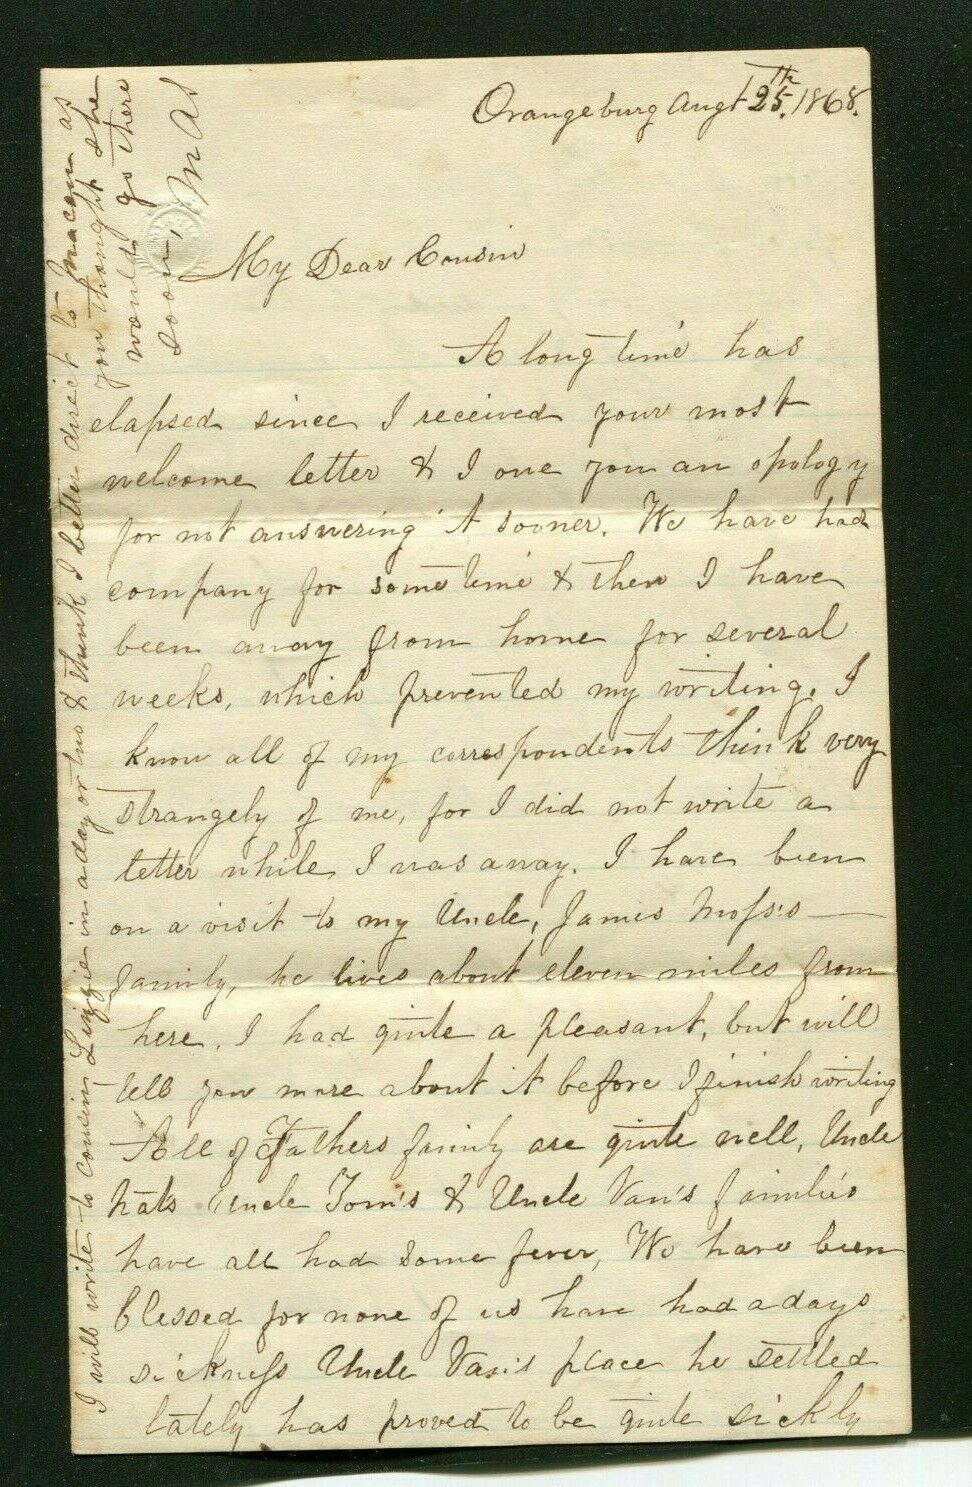 Orangeburg Augt 25th. 1868.
My Dear Cousin
A long time has
elapsed since I received your most
welcome letter & I owe you an opology
for not answering it sooner. We have had
company for some time & then I have
been away from home for several
weeks, which prevented my writing. I
know all of my correspondents think very
strangely of me, for I did not write a
letter while I was away. I have been
on a visit to my Uncle, James Moss's
family, he lives about eleven miles from
here. I had quite a pleasant, but will
tell you more about it before I finish writing
All of Fathers family are quite well, Uncle
Nats Uncle Tom's & Uncle Van's families
have all had some fever, We have been
blessed for none of us have had a days
sickness Uncle Van's place he settled
lately has proved to be quite sickly
I will write to cousin Lizzie in a day or two & think I better direct to Macon as
you thought she
would go there
soon, M A S